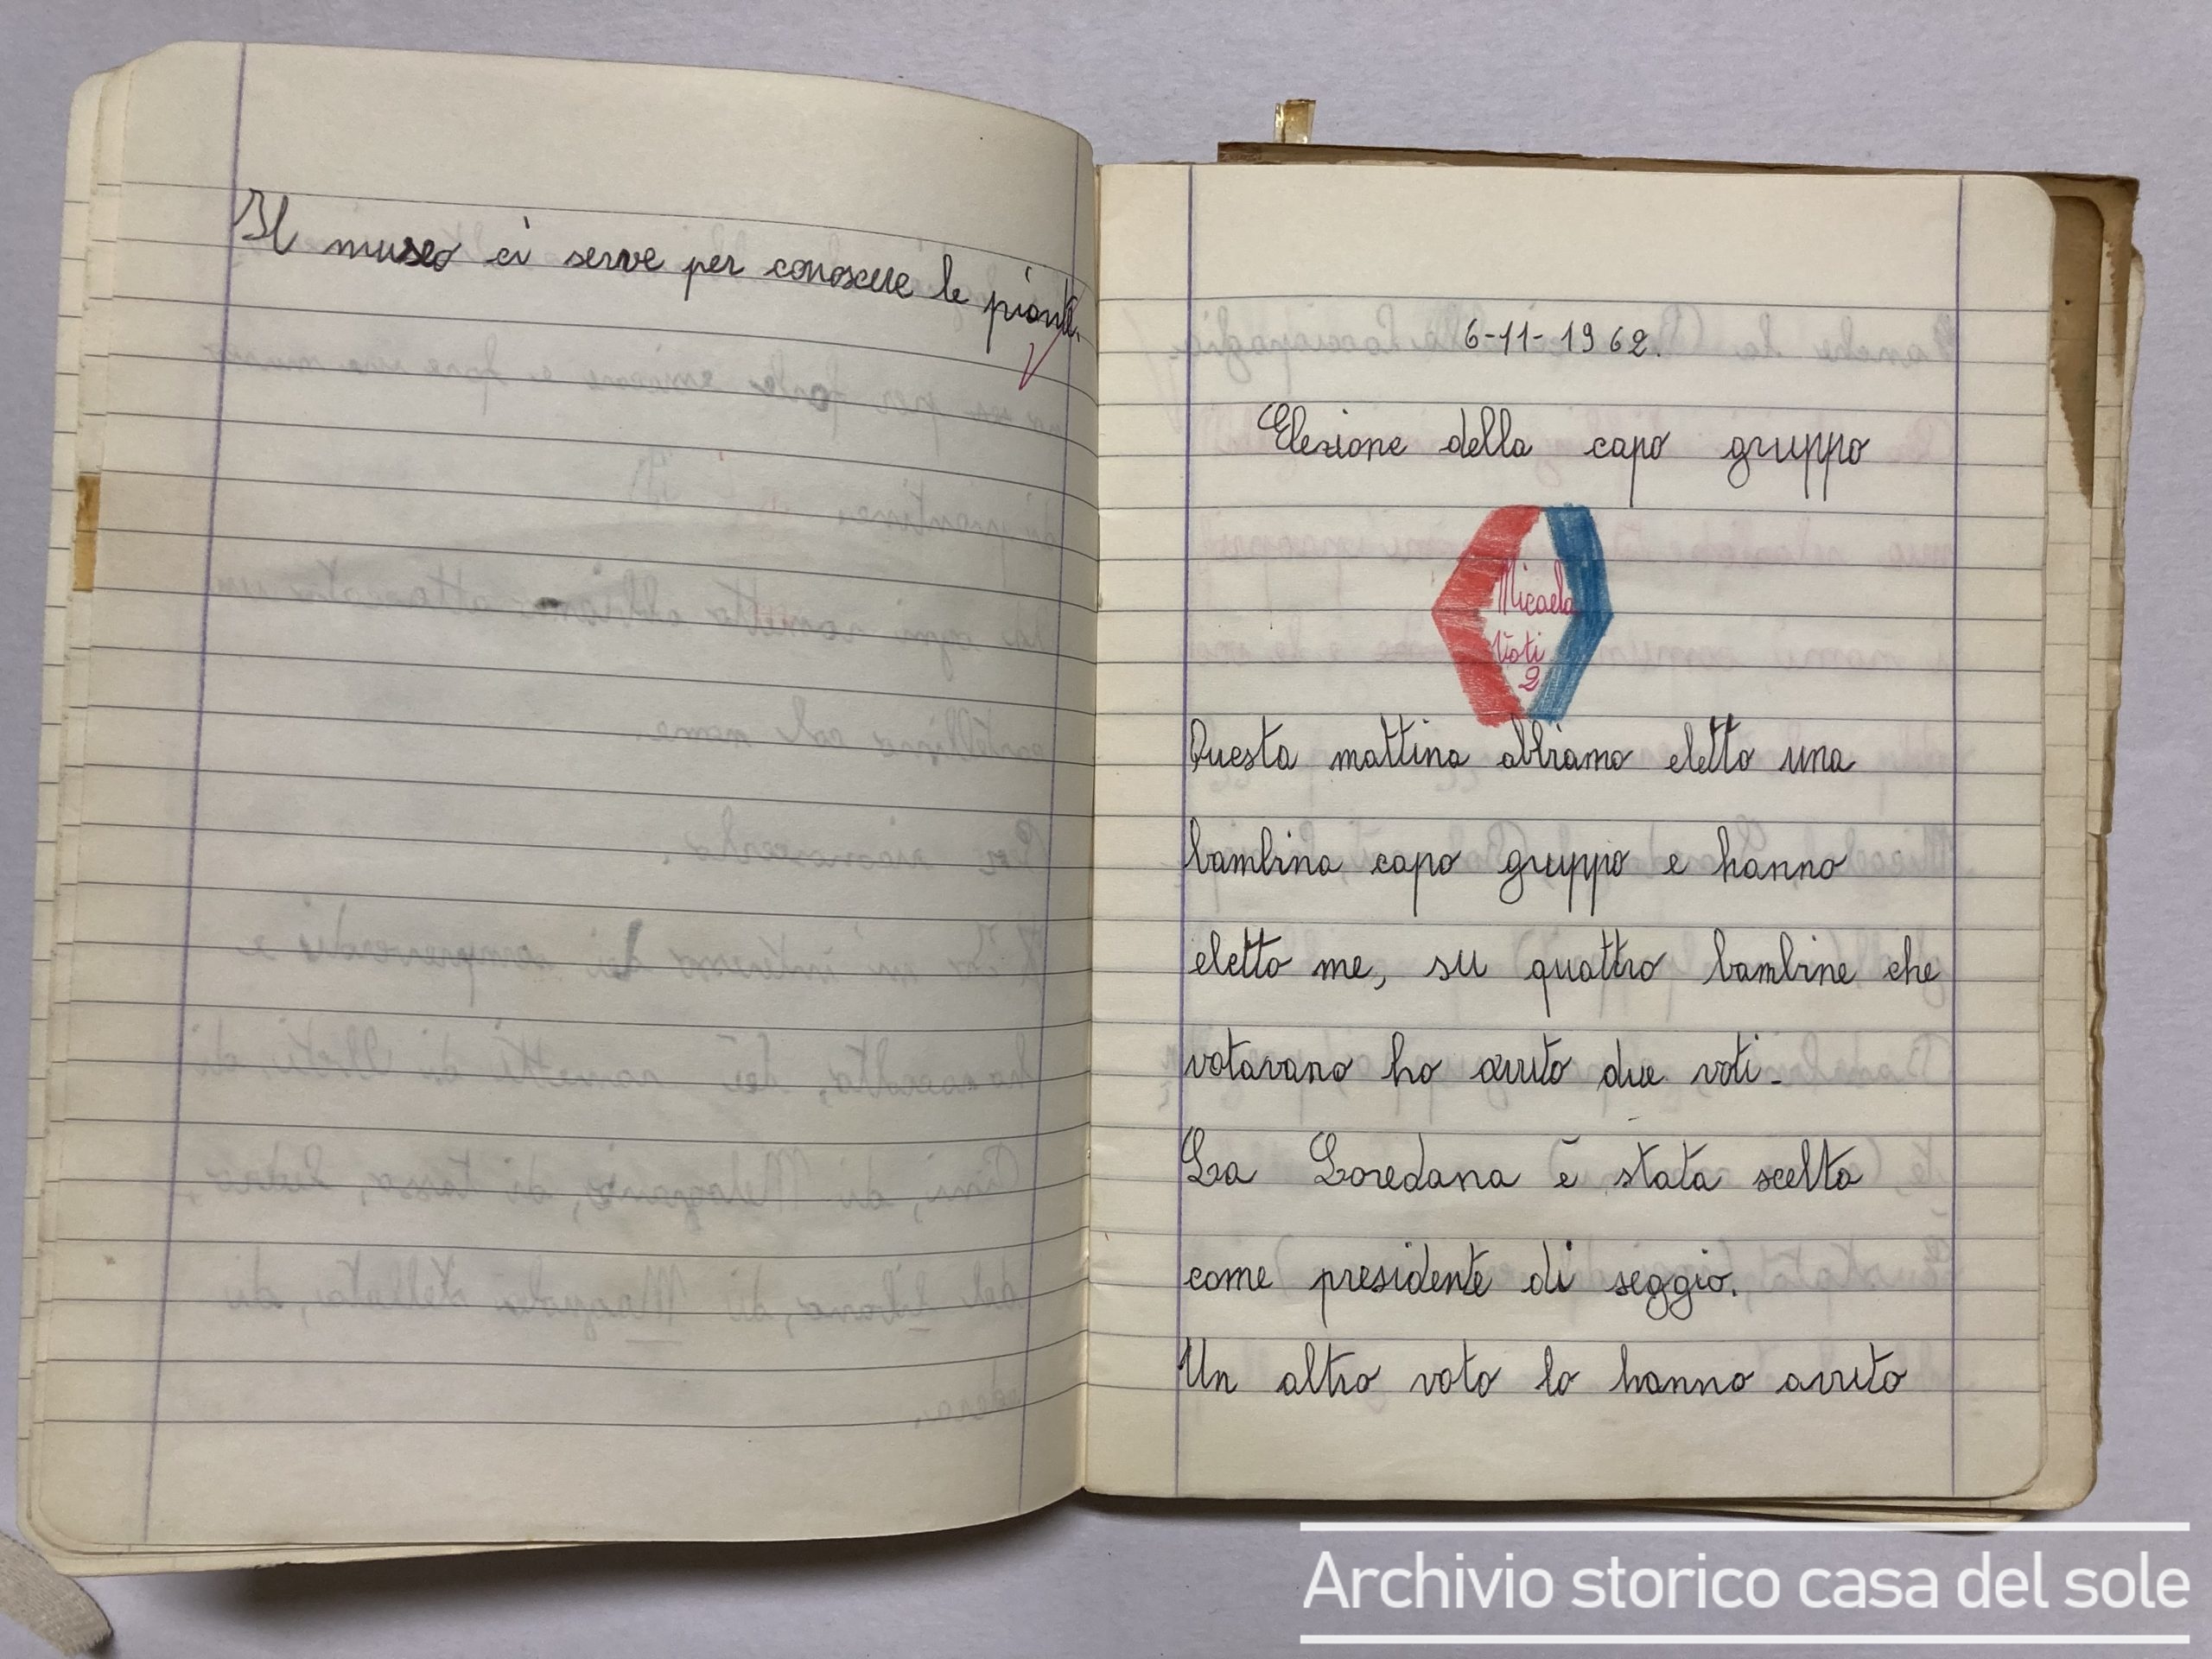 Il museo ci serve per conoscere le piante.
6-11-1962.
Elezione della capo gruppo
Micaela
Voti
2
Questa mattina abbiamo eletto una
bambina capo gruppo e hanno
eletto me, su quattro bambine che
votavano ho avuto due voti.
La Loredana è stata scelta
come presidente di seggio.
Un altro voto lo hanno avuto
Archivio storico casa del sole